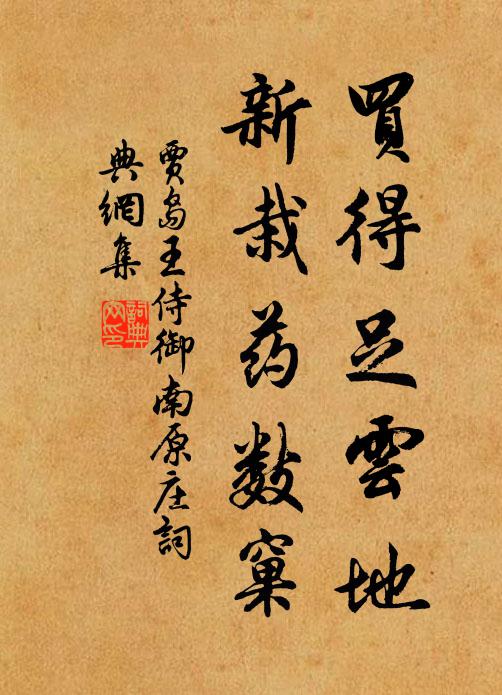 買得足雲地
新栽药數窠
贾岛王侍御南原庄詞
典網集
詞典
网印